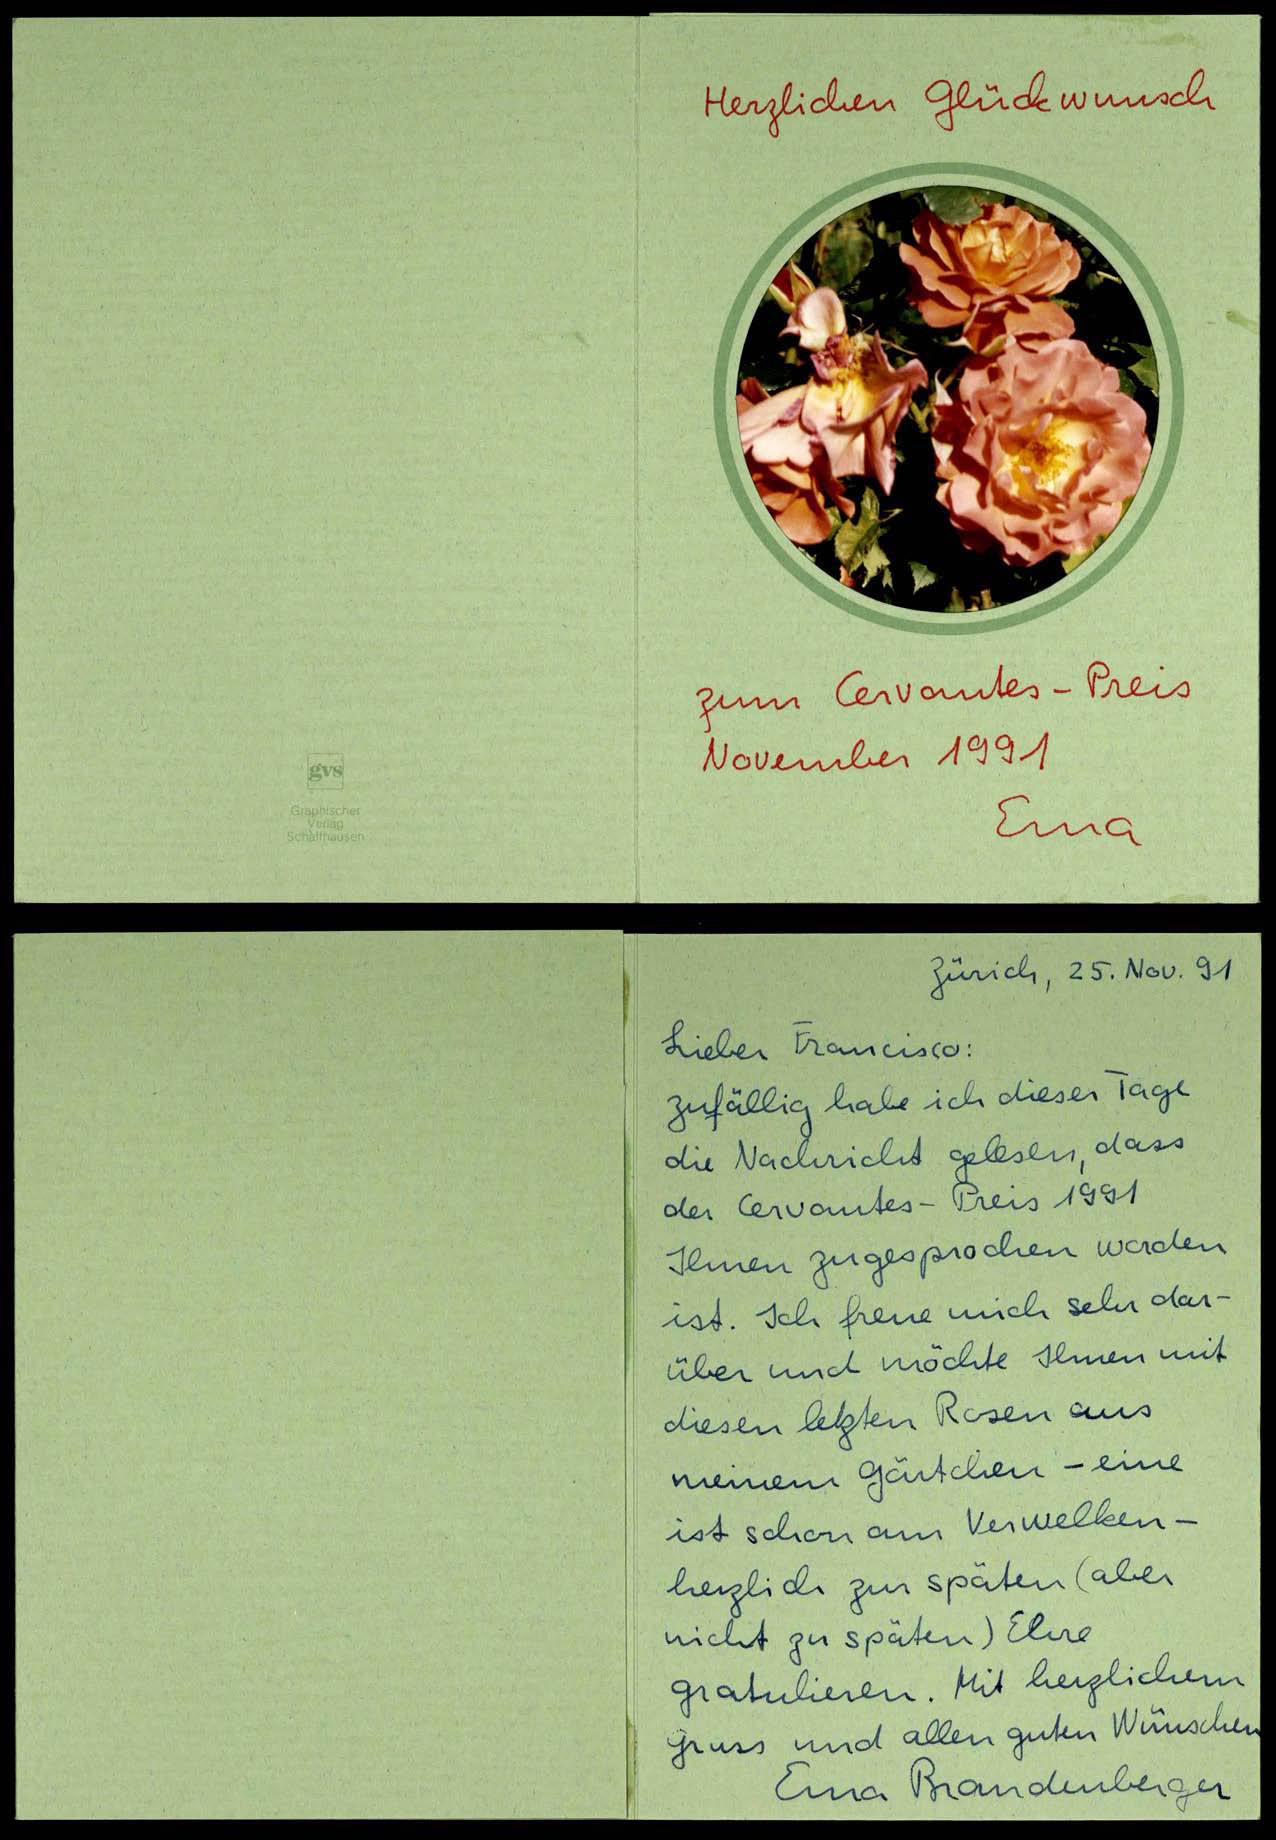 Herzlichen Glückwunsch
zum Cervantes-Preis
November 1991
Erna
gvs
Graphischer
Verlag
Schaffhausen
Zürich, 25. Nov. 91
Lieber Francisco:
zufällig habe ich dieser Tage
die Nachricht gelesen, dass
der Cervantes-Preis 1991
Ihnen zugesprochen worden
ist. Ich freue mich sehr dar-
über und möchte Ihnen mit
diesen letzten Rosen aus
meinem Gärtchen – eine
ist schon am Verwelken –
herzlich zur späten (aber
nicht zu späten) Ehre
gratulieren. Mit herzlichem
Gruss und allen guten Wünschen
Erna Brandenberger